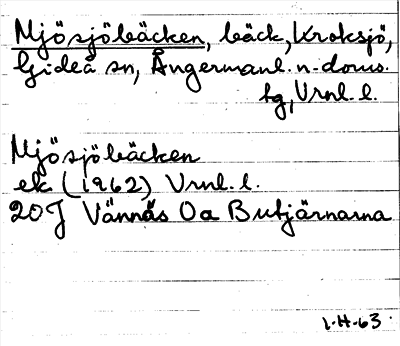 Mjösjöbäcken, bäck, Kroksjö,
Gideå sn, Ångermanl. n. doms.
fg, Vrnl. l.
Mjösjöbäcken
ek. (1962) Vrnl. l.
20J Vännäs 0a Butjärnarna
1-H-63